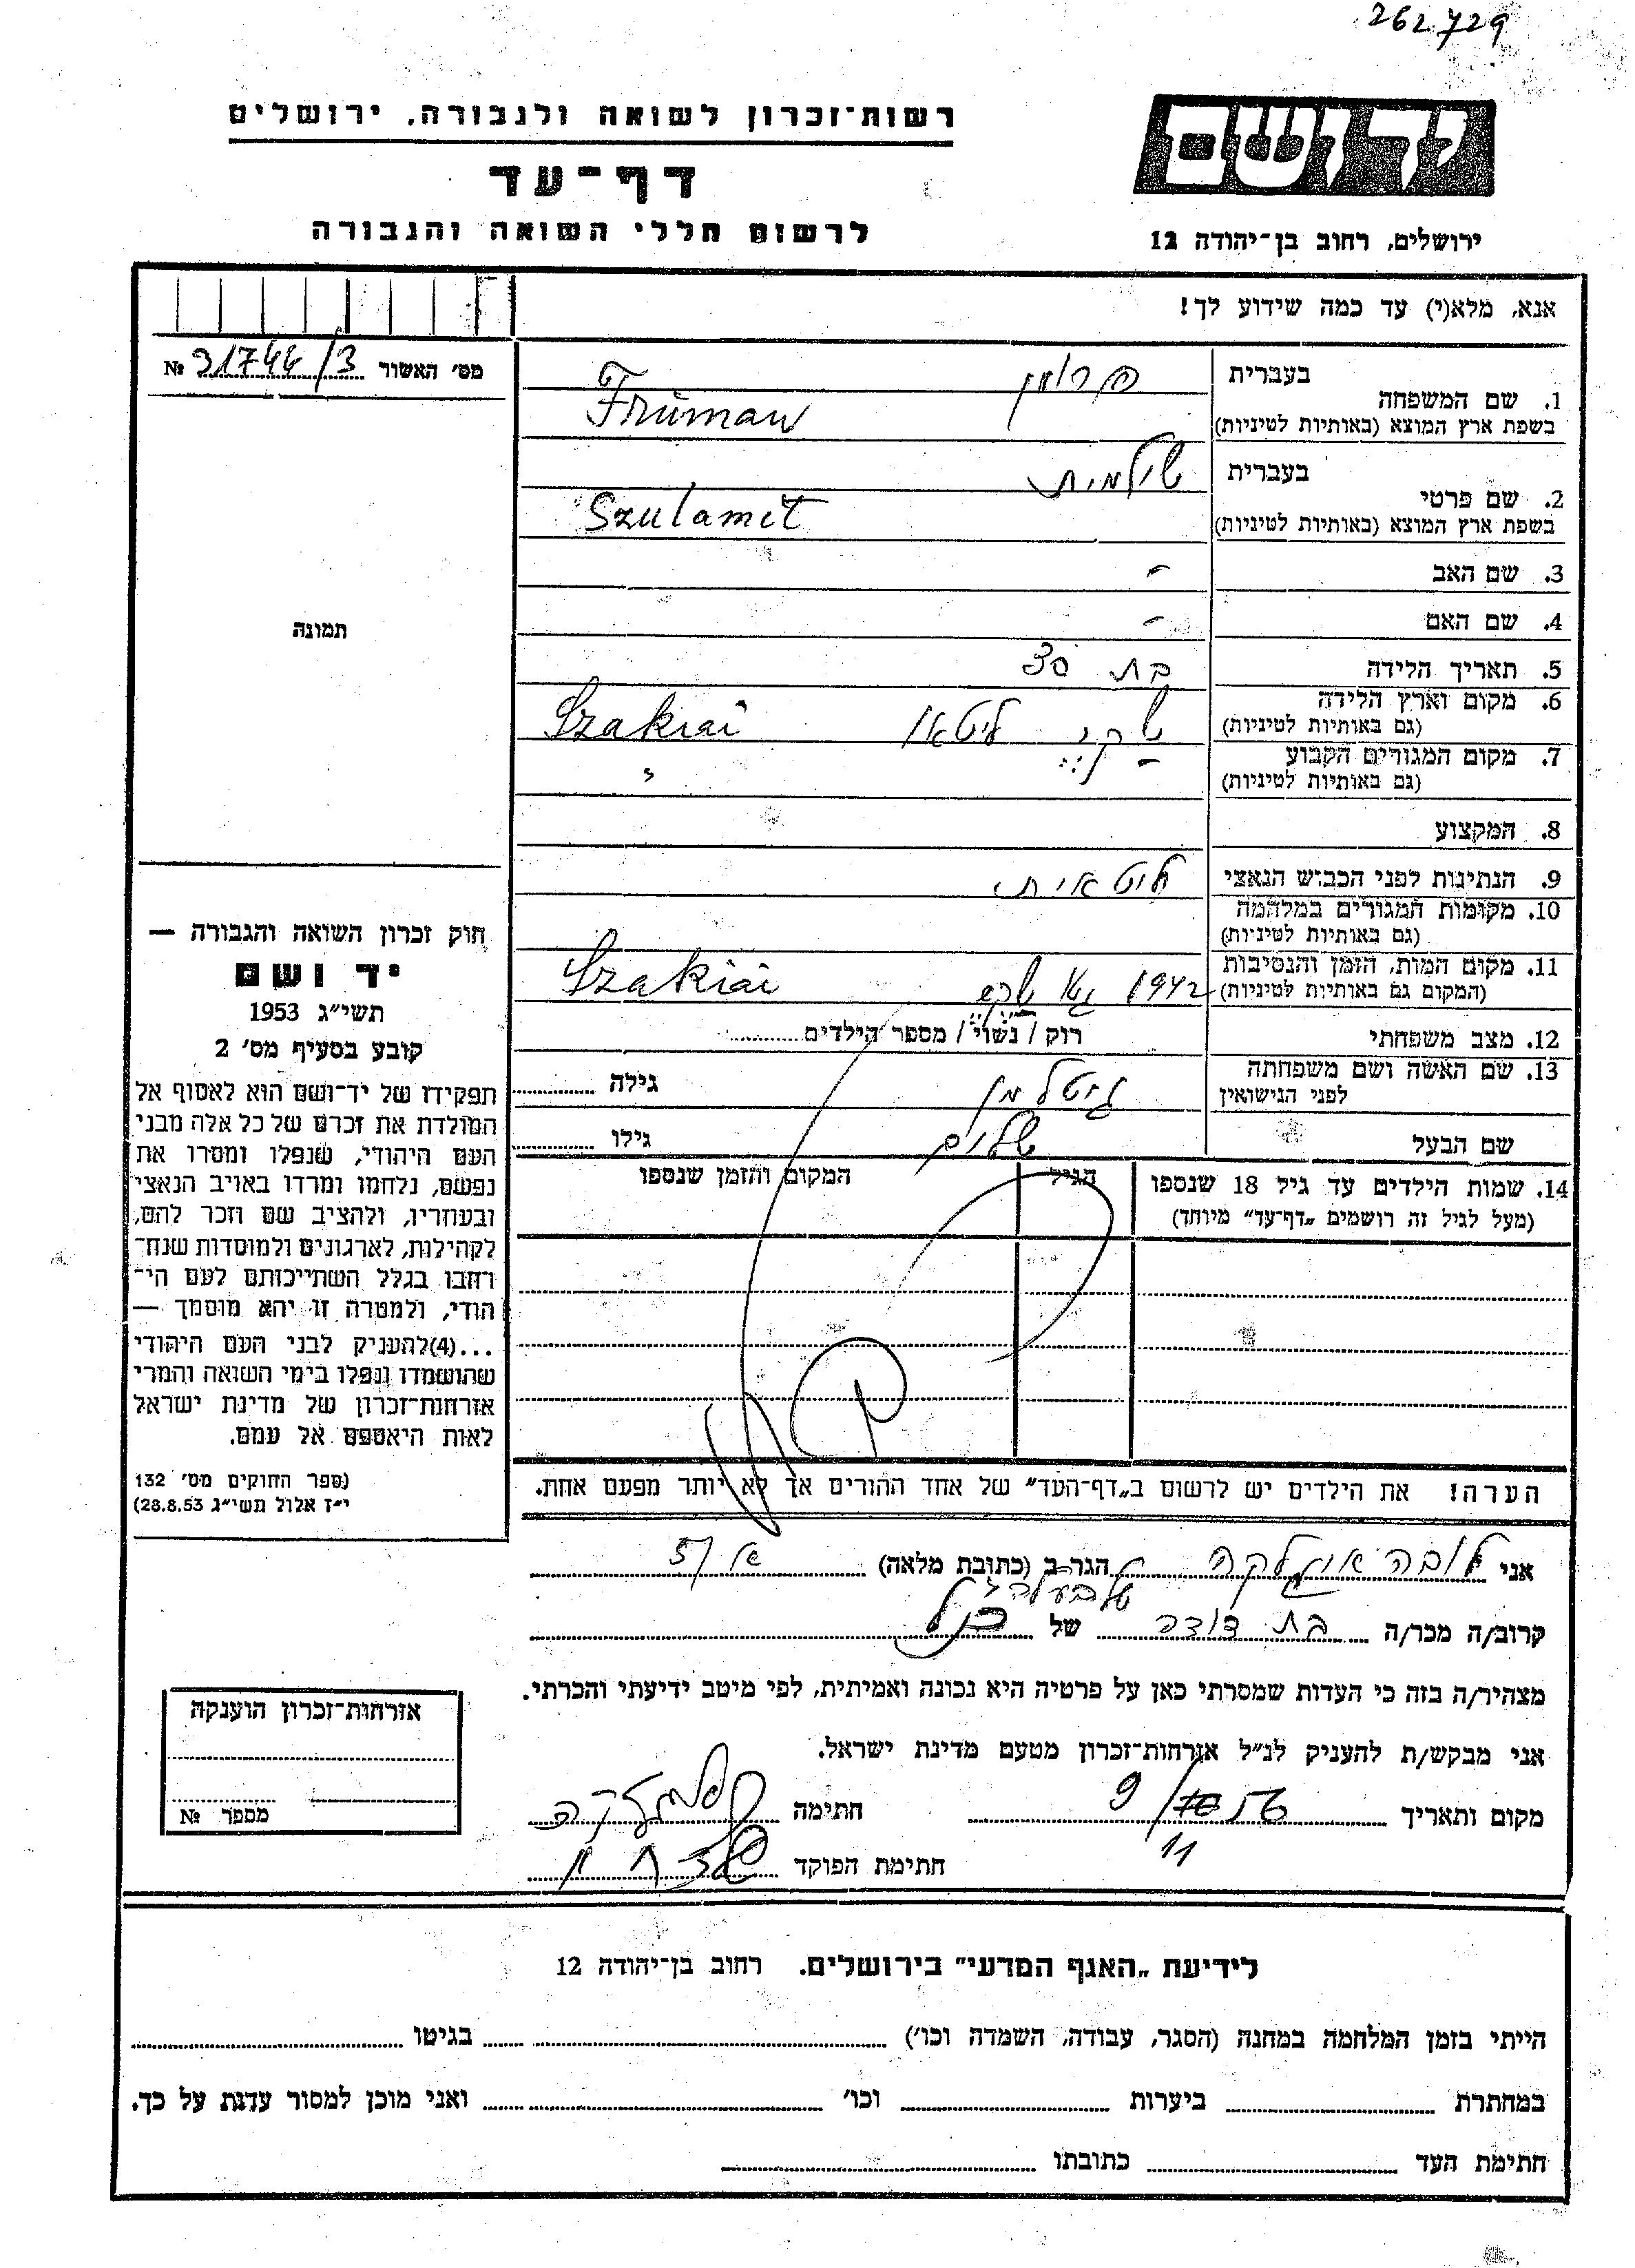 262729
רשות־זכרון לשואה ולגבורה, ירושלים
דף־עד
לרשום חללי השואה והגבורה
יד ושם
ירושלים, רחוב בן־יהודה 12
אנא, מלא(י) עד כמה שידוע לך!
מס' האשור 31744/3 №
תמונה
1. שם המשפחה בעברית פרומן
בשפת ארץ המוצא (באותיות לטיניות) Fruman
2. שם פרטי בעברית שולמית
בשפת ארץ המוצא (באותיות לטיניות) Szulamit
3. שם האב -
4. שם האם -
5. תאריך הלידה בת 30
6. מקום וארץ הלידה שקי ליטא Szakiai
(גם באותיות לטיניות)
7. מקום המגורים הקבוע - " -
(גם באותיות לטיניות)
8. המקצוע
9. הנתינות לפני הכבוש הנאצי ליטאית
10. מקומות המגורים במלחמה
(גם באותיות לטיניות)
11. מקום המות, הזמן והנסיבות 1942 Szakiai
(המקום גם באותיות לטיניות)
12. מצב משפחתי רוק / נשוי / מספר הילדים
13. שם האשה ושם משפחתה גיטלמן גילה
לפני הנישואין
שם הבעל שלום גילו
14. שמות הילדים עד גיל 18 שנספו הגיל המקום והזמן שנספו
(מעל לגיל זה רושמים „דף־עד" מיוחד)
הערה! את הילדים יש לרשום ב„דף־העד" של אחד ההורים אך לא יותר מפעם אחת.
חוק זכרון השואה והגבורה —
יד ושם
תשי"ג 1953
קובע בסעיף מס' 2
תפקידו של יד־ושם הוא לאסוף אל
המולדת את זכרם של כל אלה מבני
העם היהודי, שנפלו ומסרו את
נפשם, נלחמו ומרדו באויב הנאצי
ובעוזריו, ולהציב שם וזכר להם,
לקהילות, לארגונים ולמוסדות שנח־
רבו בגלל השתייכותם לעם הי־
הודי, ולמטרה זו יהא מוסמך —
...(4)להעניק לבני העם היהודי
שהושמדו ונפלו בימי השואה והמרי
אזרחות־זכרון של מדינת ישראל
לאות היאספם אל עמם.
(ספר החוקים מס' 132
י"ז אלול תשי"ג 28.8.53)
אני לובה הגר ב (כתובת מלאה)
קרוב/ה מכר/ה בת דודה של
מצהיר/ה בזה כי העדות שמסרתי כאן על פרטיה היא נכונה ואמיתית, לפי מיטב ידיעתי והכרתי.
אני מבקש/ת להעניק לנ"ל אזרחות־זכרון מטעם מדינת ישראל.
מקום ותאריך 9/11 חתימה
חתימת הפוקד
אזרחות־זכרון הוענקה
מספר №
לידיעת „האגף המדעי" בירושלים. רחוב בן־יהודה 12
הייתי בזמן המלחמה במחנה (הסגר, עבודה, השמדה וכו') בגיטו
במחתרת ביערות וכו' ואני מוכן למסור עדות על כך.
חתימת העד כתובתו